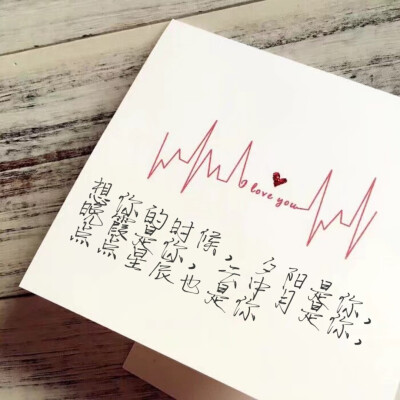 love you
想你的时候，夕阳是你，
晚霞是你，云中月是你，
点点星辰也是你